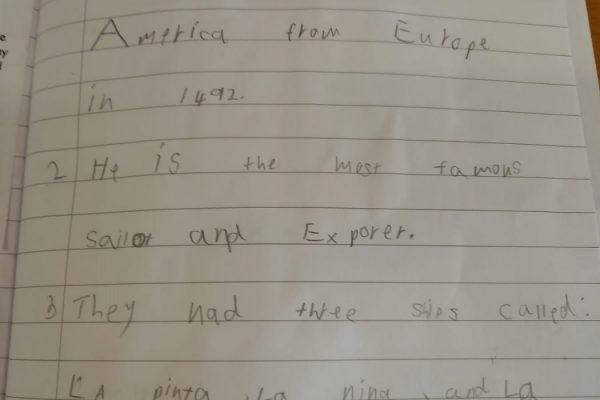 America from Europe
in 1492.
2 He is the most famous
sailor and Exporer.
3 They had three sips called:
LA pinta, La nina, and La